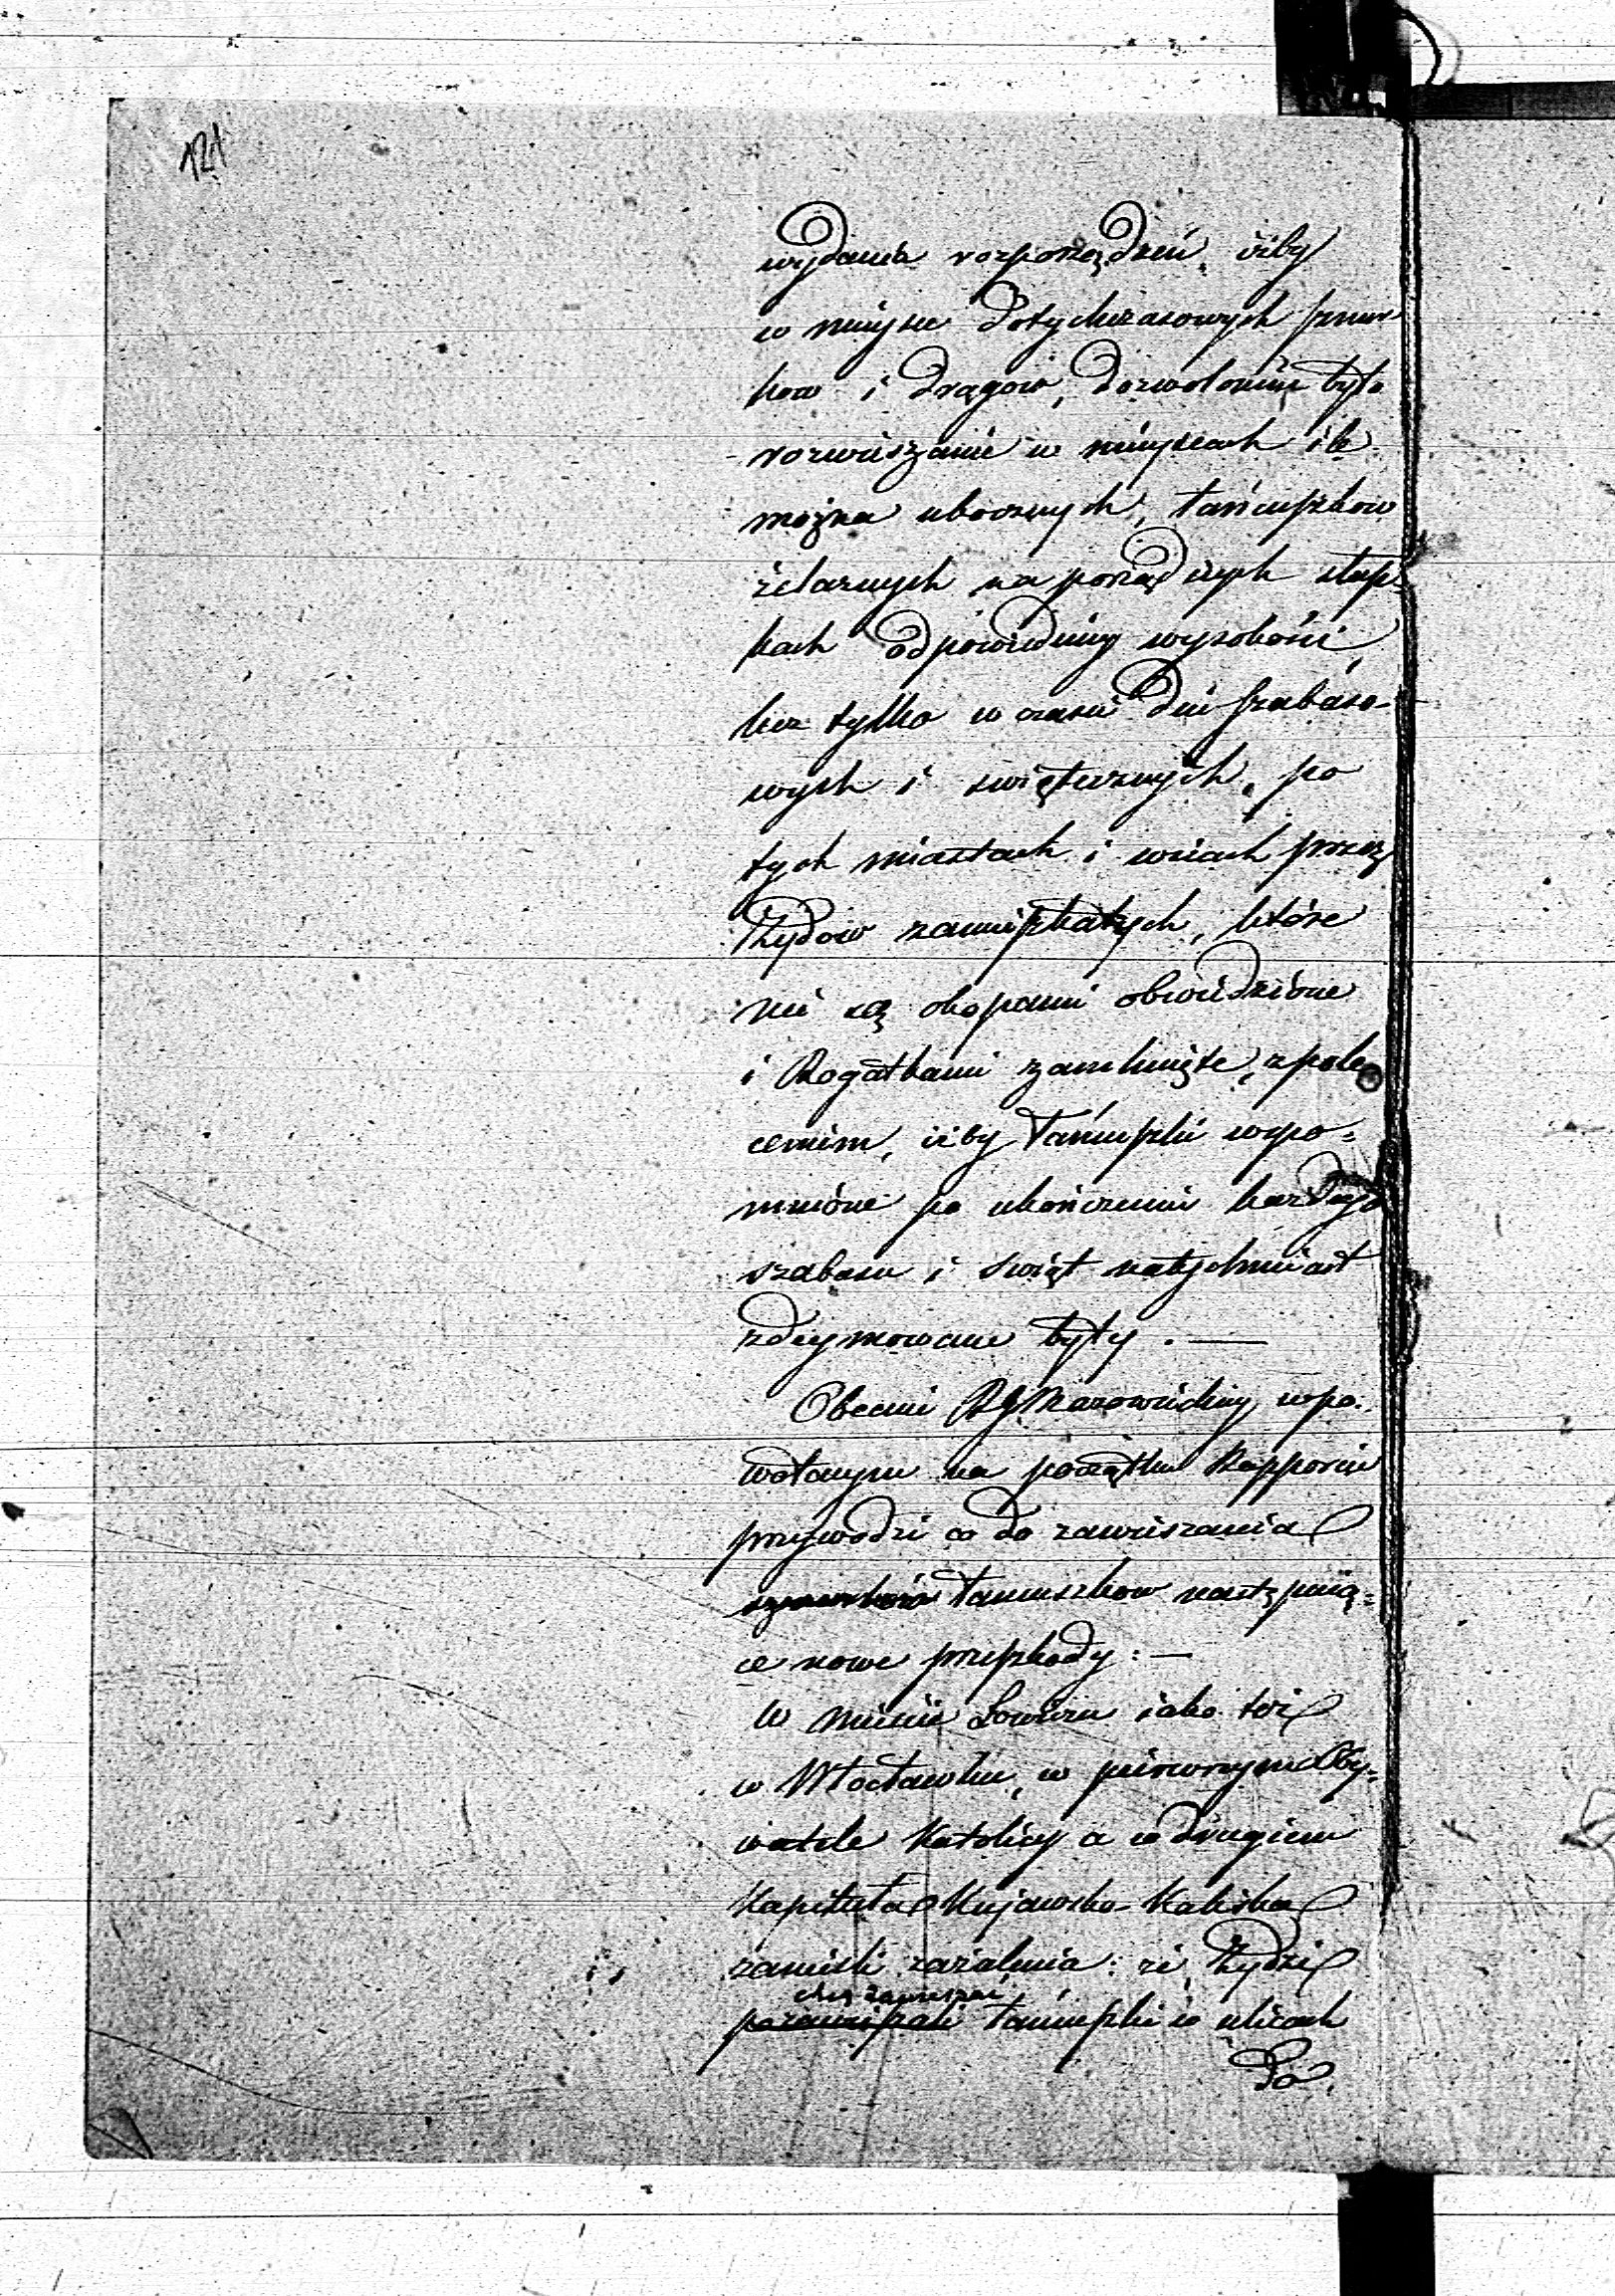 121
wydania rozporządzeń, iżby
w mieysce dotychczasowych sznur
kow i drągów, dozwolonem było
rozwieszanie w mieyscach ile
można ubocznych, łańcuszkow
żelaznych na porządnych słup-
kach odpowiedniey wysokości,
lecz tylko w czasie dni szabaso-
wych i świętecznych, po
tych miastach i wsiach przez
Żydow zamieszkałych, które
nie są okopami obwiedzione
i Rogatkami zamknięte, z pole
ceniem, iżby łańcuszki wspo=
mnione po ukończeniu każdego
szabasu i świąt natychmiast
zdeymowane były. —
Obecnie RGMazowieckiey w po-
wołanym na początku Rapporcie
przywodzi co do zawieszania
sznurków łancuszkow następuią=
ce nowe przeszkody: —
W mieście Łowiczu iako też
w Włocławku, w pierwszym Oby=
watele Katolicy a w drugiem
Kapituła Kujawsko-Kaliska
zanieśli zażalenia: że Żydzi
chcą zawieszać
pozawieszali łancuszki w ulicach
Do